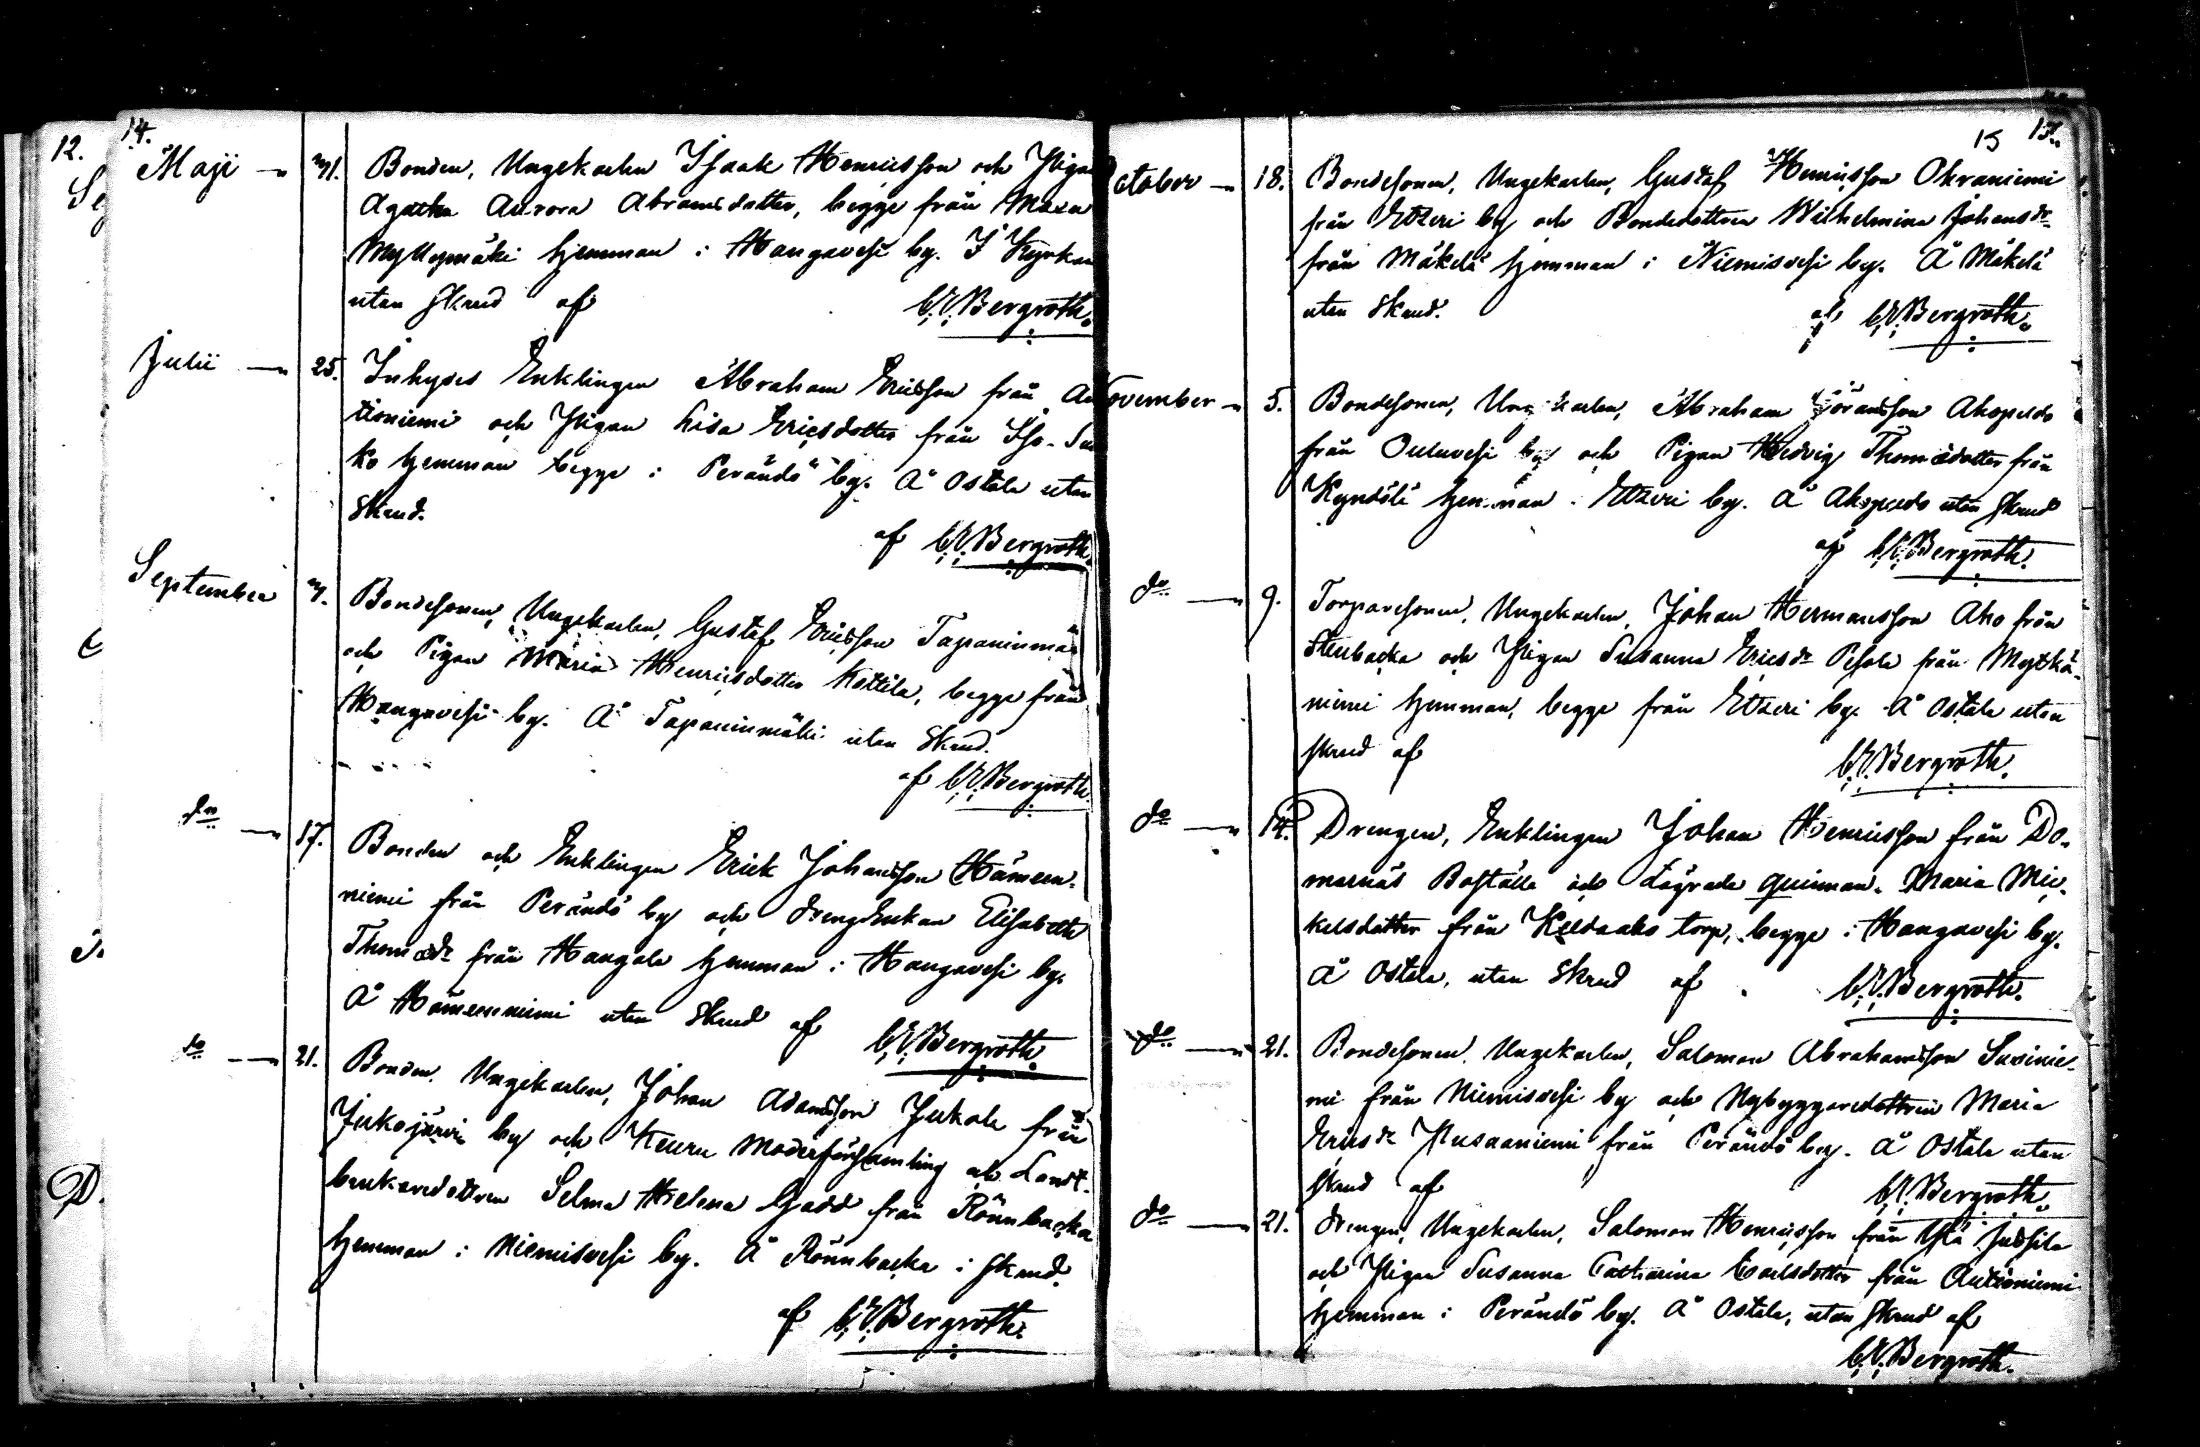 12.
14.
Maji 31. Bonden, Ungekarlen Isaak Henricsson och Pigan
Agatha Aurora Abramsdotter, begge från
Myllymäki hemman i Hangavesi by. I Kyrkan
utan skrud af C.E. Bergroth.
Julii 25. Inhyses Enklingen Abraham Ericsson från Au
tioniemi och Pigan Lisa Ericsdotter från Iso-
ko hemman begge i Perändö by. Å Ostola utan
skrud.
af C.E. Bergroth.
September 7. Bondesonen, Ungekarlen, Gustaf Ericsson Tapaninmä
och Pigan Maria Henricsdotter Kottila, begge från
Hangavesi by. Å Tapaninmäki utan skrud.
af C.E. Bergroth.
do 17. Bonden och Enklingen Erick Johansson Hämeen-
niemi från Perändö by och drengEnkan Elisabeth
Thomædr från Hangala hemman i Hangavesi by.
Å Hämeenniemi utan skrud af
C.E. Bergroth.
do 21. Bonden, Ungekarlen, Johan Adamsson Jukola från
Jukojärvi by och Keuru Moderförsamling och Landt-
brukaredottren Selma Helena Gadd från Rönnbacka
hemman i Niemisvesi by. Å Rönnbacka i skrud.
af C.E. Bergroth.
15
October 18. Bondesonen, Ungekarlen, Gustaf Henricsson Ohraniemi
från Etzeri by och Bondedottren Wilhelmina Johansdr
från Mäkelä hemman i Niemisvesi by. Å Mäkelä
utan skrud. af C.E. Bergroth.
November 5. Bondesonen, Ungekarlen, Abraham Göransson Ahopeldo
från Ouluvesi by och Pigan Hedvig Thomædotter från
hemman i Etzeri by. Å Ahopeldo utan skrud
af C.E. Bergroth.
do 9. Torparesonen, Ungekarlen, Johan Hermansson Aho från
Stenbacka och Pigan Susanna Ericsdr Pesola från Mytkä-
niemi hemman, begge från Etzeri by. Å Ostola utan
skrud af C.E. Bergroth.
do 14. Drengen, Enklingen Johan Henricsson från Do-
marnäs Boställe och Lägrade quinnan Maria Mic-
kelsdotter från Keldaaho torp, begge i Hangavesi by.
Å Ostola, utan skrud af C.E. Bergroth.
do 21. Bondesonen, Ungekarlen, Salomon Abrahamsson Savinie-
mi från Niemisvesi by och Nybyggaredottren Maria
Ericsdr Husaaniemi från Perändö by. Å Ostola utan
skrud af C.E. Bergroth.
do 21. Drengen, Ungekarlen, Salomon Henricsson från
och Pigan Susanna Catharina Carlsdotter från Autioniemi
hemman i Perändö by. Å Ostola, utan skrud af
C.E. Bergroth.